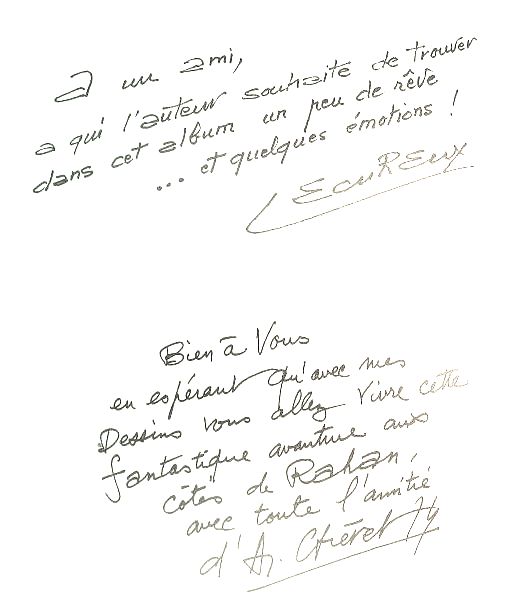 a un ami,
a qui l'auteur souhaite de trouver
dans cet album un peu de rêve
... et quelques émotions !
LEcuREux
Bien à Vous
en espérant qu'avec mes
Dessins vous allez vivre cette
fantastique avanture aux
côtés de Rahan,
avec toute l'amitié
d'A. Chéret 74